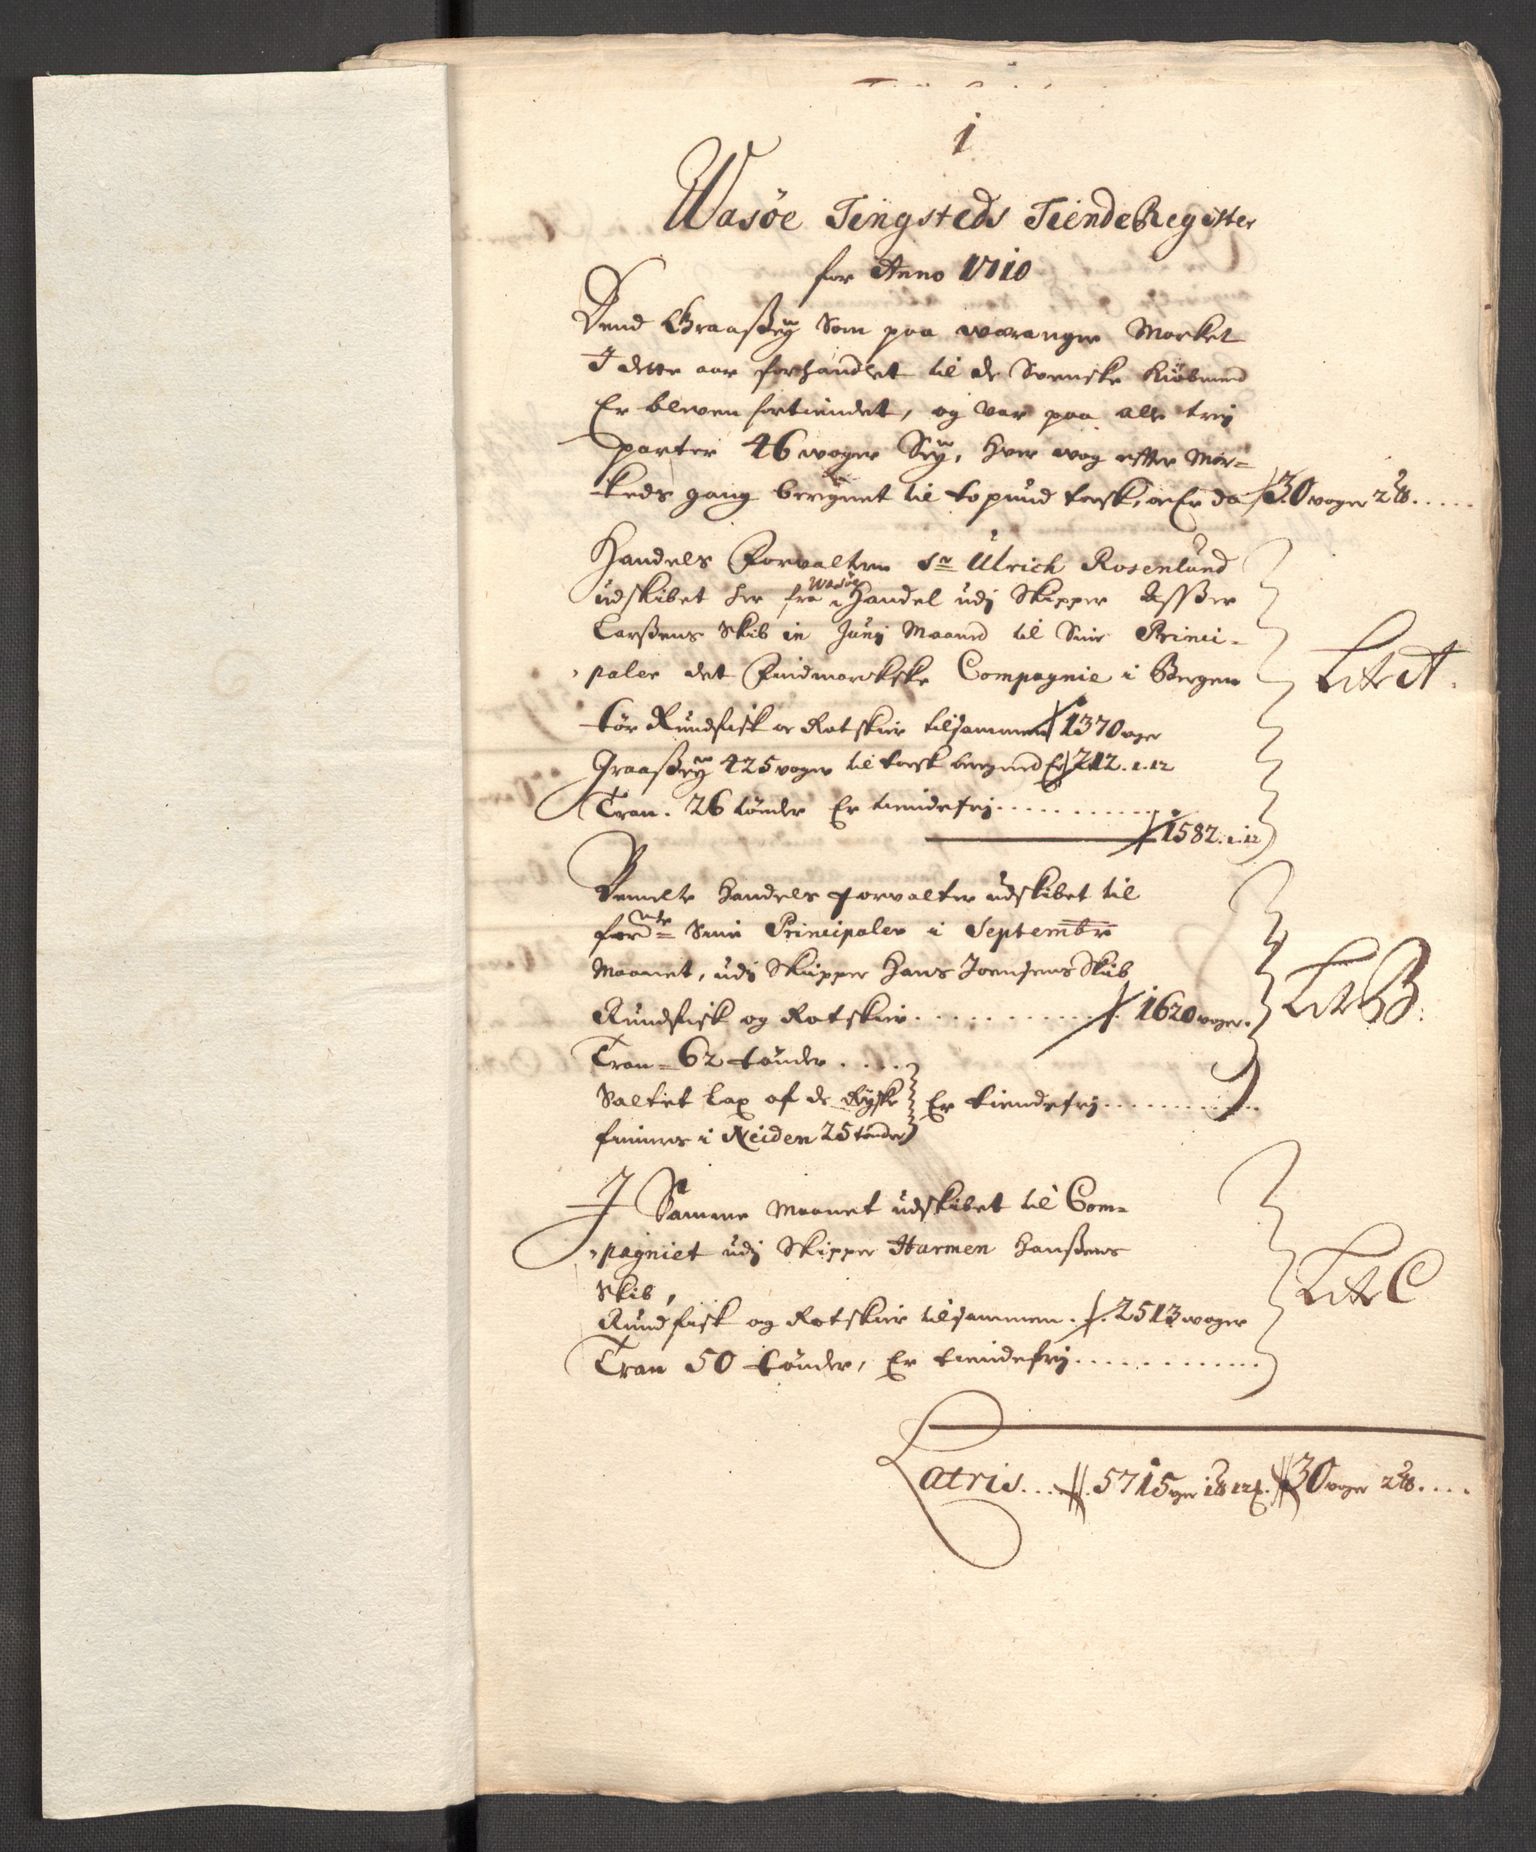 1
Wasöe Tingsteds TiendeRegister
for Anno 1710
Dend Graaßey Som paa waranger Marked
I dette aar forhandlet til de Svenske Kiöbmend
Er bleven fortiendet, og var paa alle trej
parter 46 woger Sey, hver wog efter Mar=
keds gang beregnet til to pund torsk, er Er da 30 woger 2 ℔.....
Handels Forvalteren Sr Ulrich Rosenlund
udskibet her fra Wasöe Handel udj Skipper Assßer
Larßens Skib in Junj Maaned til Sine Princi=
paler det Findmarckske Compagnie i Bergen
tör Rundfisk oc Rotskier tilsammen 1370 woger
Graaßey 425 woger til torsk beregned Er 212.1.12
Tran. 26 tönder Er tiendefrj..........
1582.1.12
Litr A.
Bemelte Handels Forvalter udskibet til
forte Sine Principaler i Septembr
Maanet, udj Skipper Hans Joensens Skib
Rundfisk og Rotskier.......... 1620 woger.
Tran 62 tönder....
Saltet Lax af de Ryske
finner i Neiden 25 tönder
Er tiendefrj..........
Litr B.
I Samme Maanet udskibet til Com=
pagniet udj Skipper Harmen Hanßens
Skib,
Rundfisk og Rotskier tilsammen.. 2513 woger
Tran 50 tönder, Er tiendefrj..........
Litr C
Latris... 5715 wger 1 ℔ 12 30 woger 2 ℔....